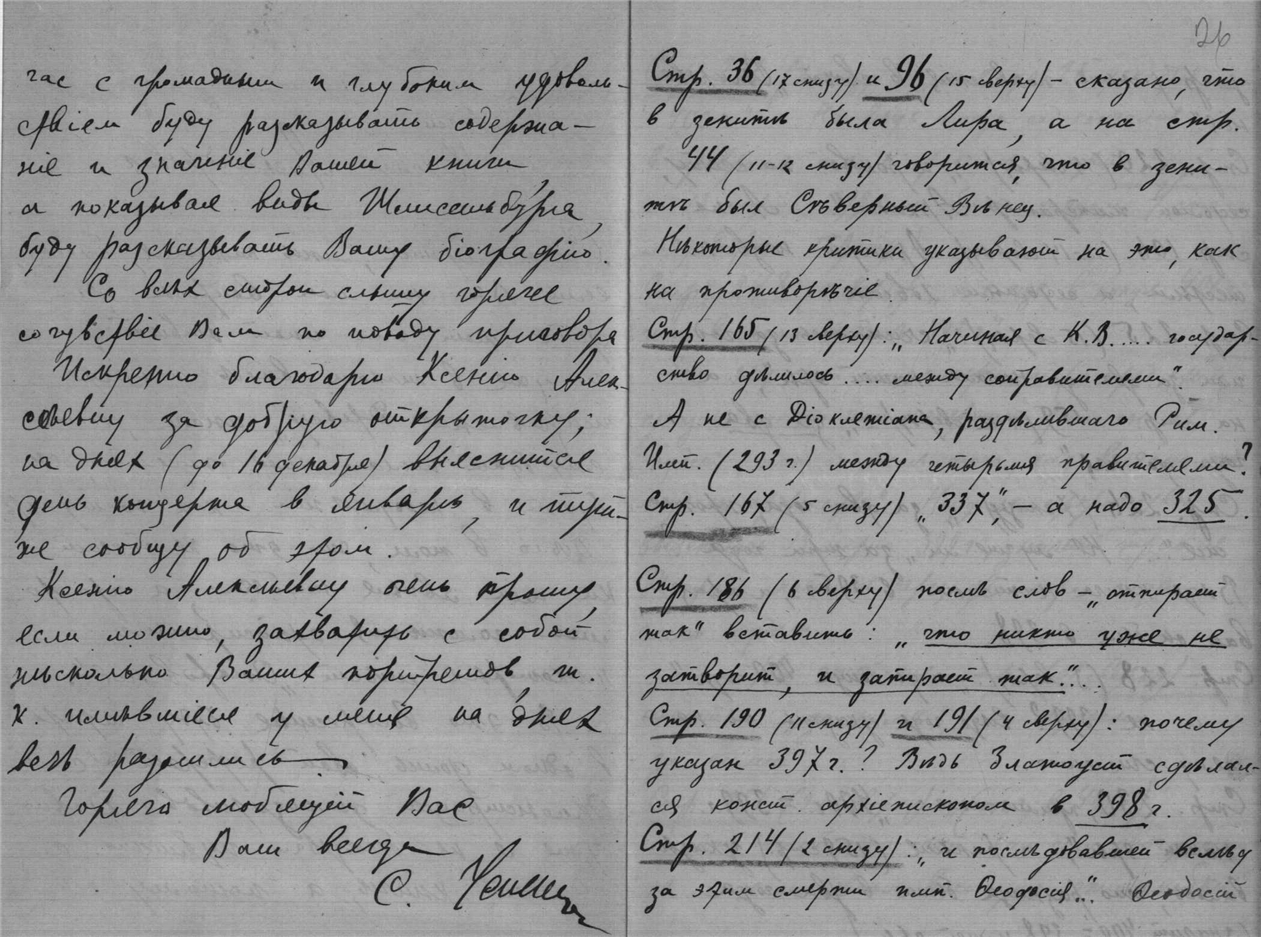 час с громадным и глубоким удоволь-
ствіем буду разсказывать содержа-
ніе и значеніе Вашей книги,
а показывая виды Шлиссельбурга,
буду разсказывать Вашу біографію.
Со всѣх сторон слышу горячее
сочувствіе Вам по поводу приговора
Искренно благодарю Ксенію Алек-
сѣевну за добрую открыточку;
на днях (до 16 декабря) выяснится
день концерта в январѣ, и тут-
же сообщу об этом.
Ксенію Алексѣевну очень прошу,
если можно, захватить с собой
нѣсколько Ваших портретов, т.
к. имѣвшіеся у меня на днях
всѣ разошлись
Горячо любящій Вас
Ваш всегда
С.
26
Стр. 36 (17 снизу) и 96 (15 сверху) – сказано, что
в зенитѣ была Лира, а на стр.
44 (11-12 снизу) говорится, что в зени-
тѣ был Сѣверный Вѣнец.
Нѣкоторые критики указывают на это, как
на противорѣчіе.
Стр. 165 (13 сверху): „Начиная с К.В.... государ-
ство дѣлилось .... между соправителями".
А не с Діоклетіана, раздѣлившаго Рим.
Имп. (293 г.) между четырьмя правителями?
Стр. 167 (5 снизу) „337", – а надо 325.
Стр. 186 (6 сверху) послѣ слов – „отпирает
так" вставить: „что никто уже не
затворит, и запирает так"...
Стр. 190 (11 снизу) и 191 (4 сверху): почему
указан 397 г.? Вѣдь Златоуст сдѣлал-
ся конст. архіепископом в 398 г.
Стр. 214 (2 снизу): „и послѣдовавшей вслѣд
за этим смерти имп. Ѳеодосія"... Ѳеодосій